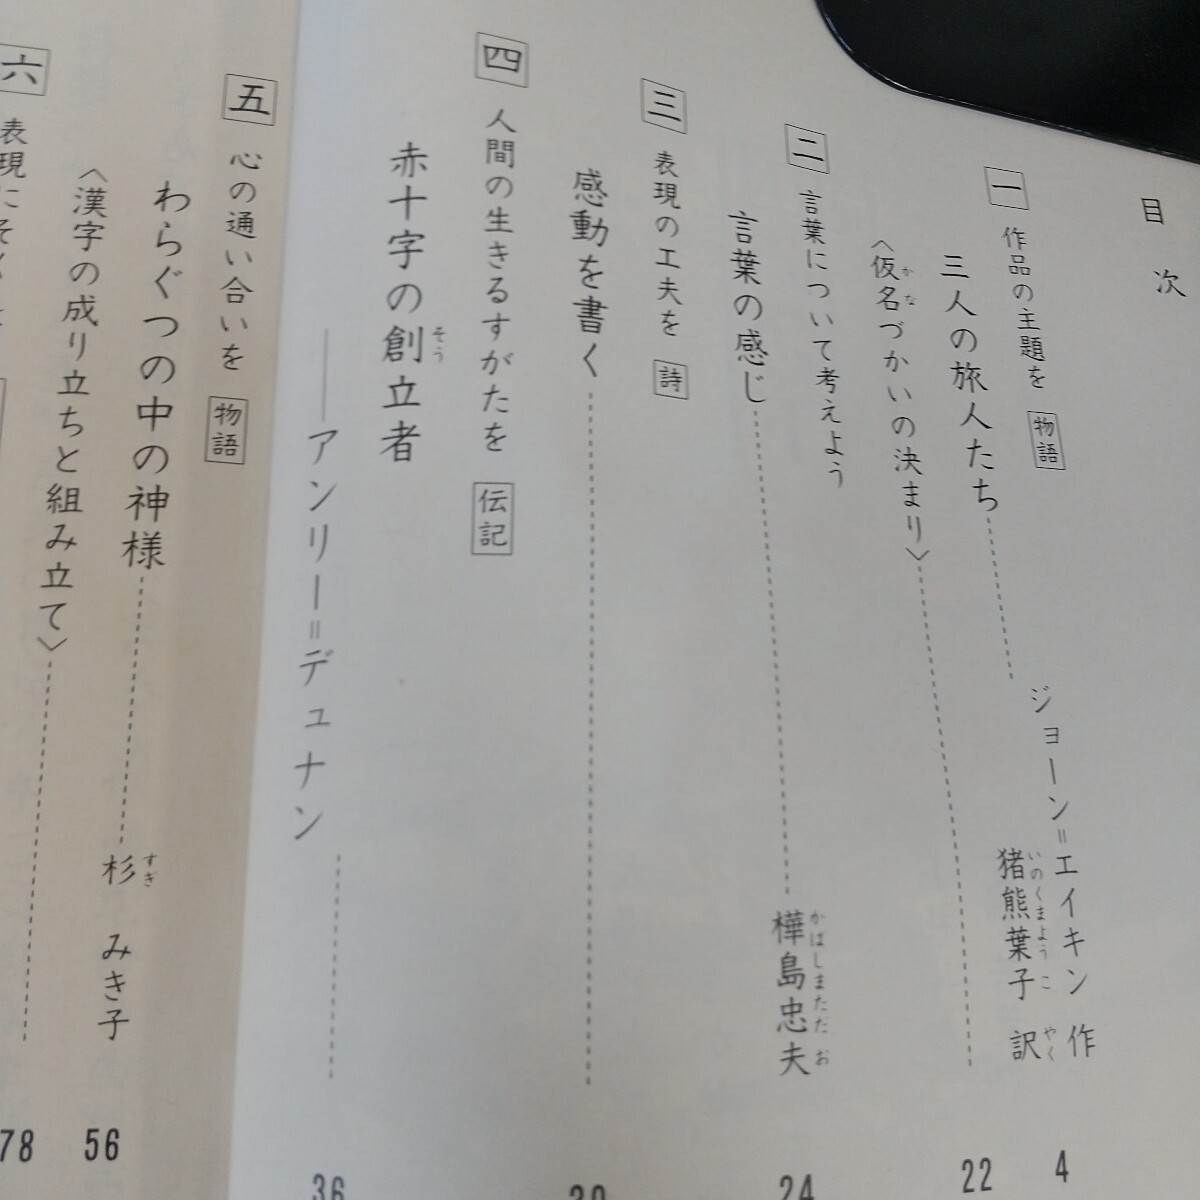 目次
一 作品の主題を 物語
三人の旅人たち ジョーン＝エイキン 作
猪熊葉子 訳
いのくまようこ やく
4
〈仮名づかいの決まり〉 22
かな
二 言葉について考えよう
言葉の感じ 樺島忠夫 24
かばしまただお
三 表現の工夫を 詩
感動を書く
四 人間の生きるすがたを 伝記
赤十字の創立者
そう
――アンリー＝デュナン 36
五 心の通い合いを 物語
わらぐつの中の神様 杉 みき子 56
すぎ
〈漢字の成り立ちと組み立て〉 78
六 表現に